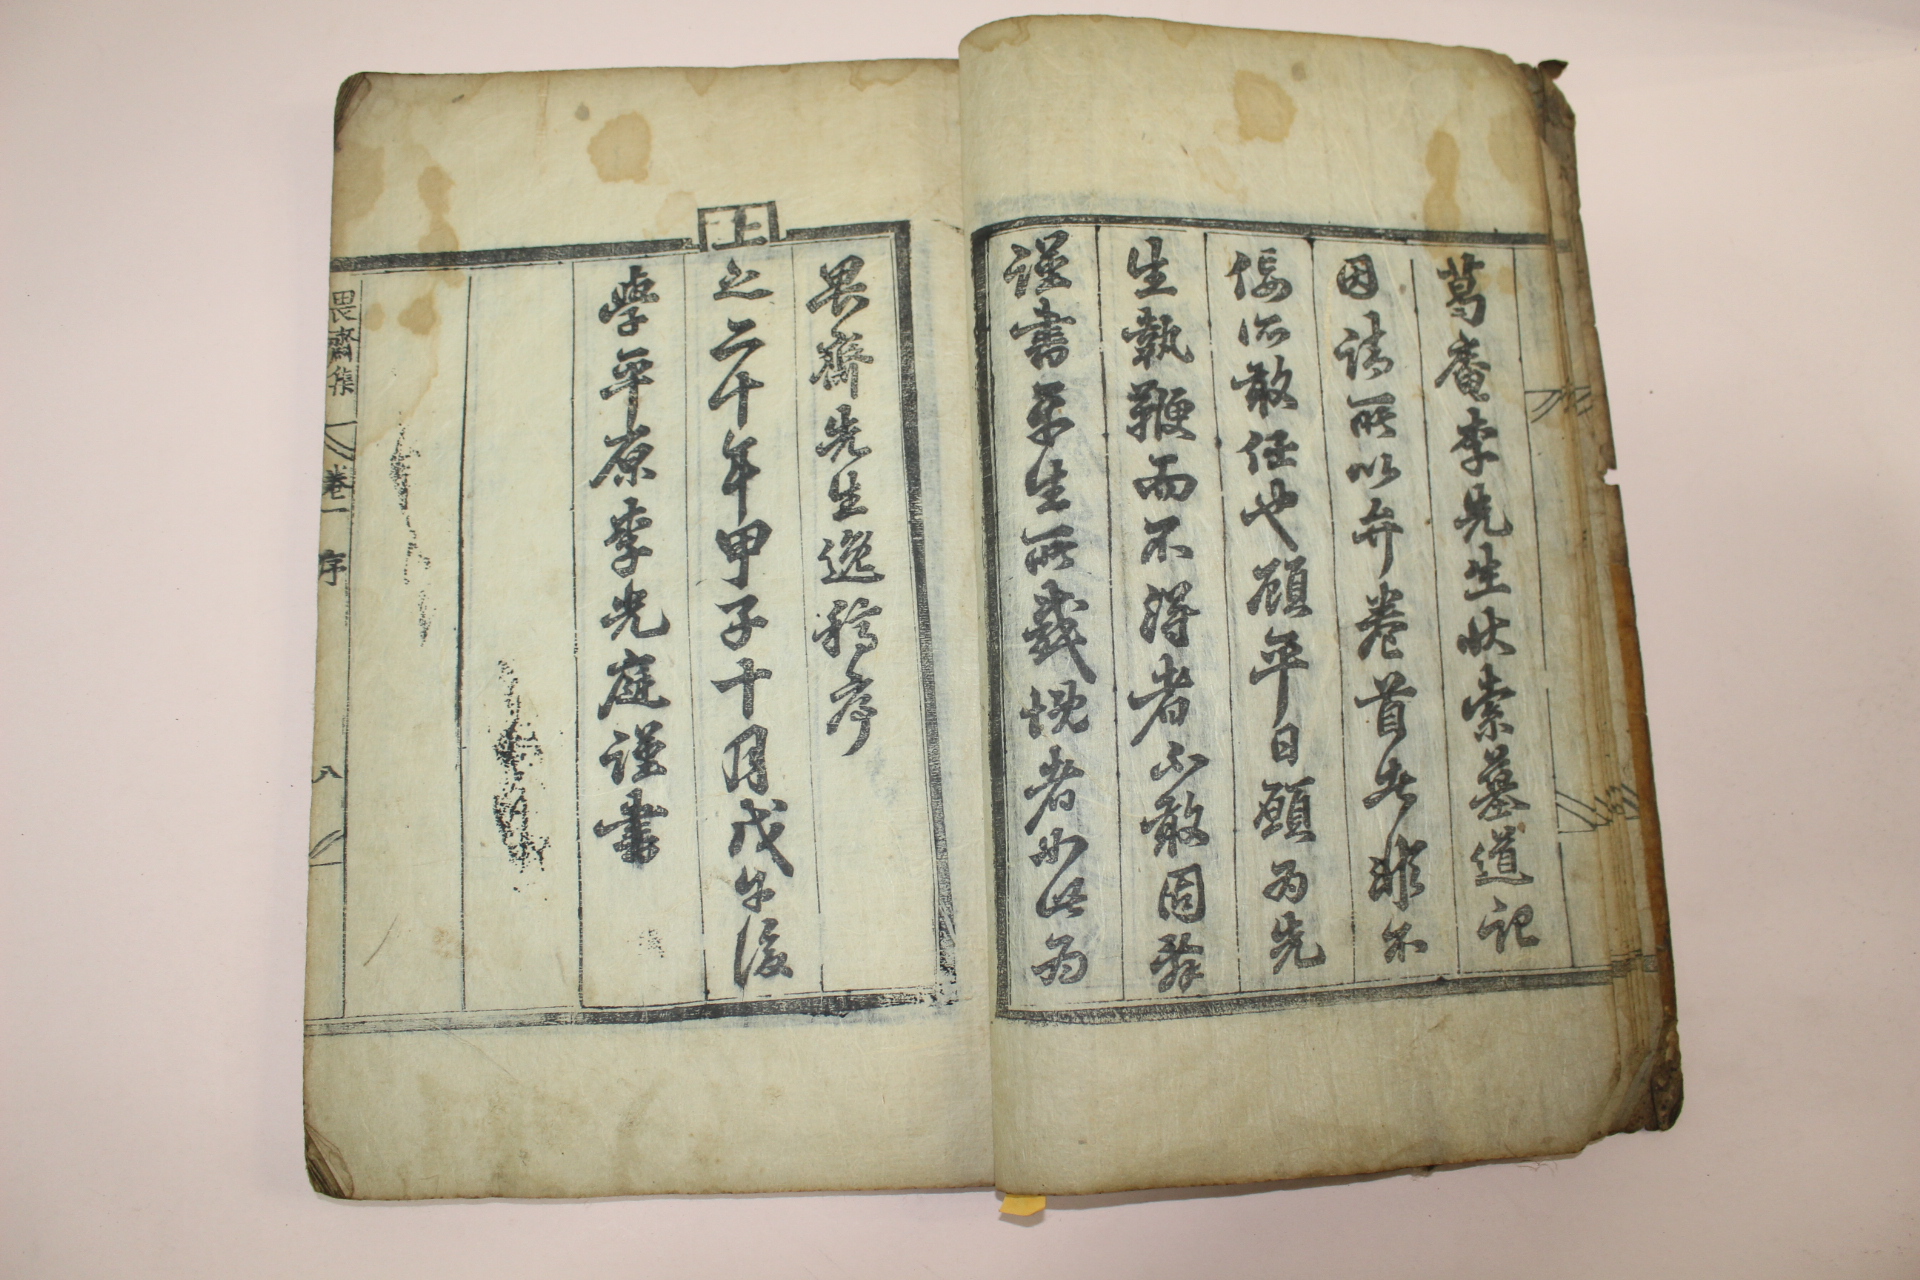 葛庵李先生狀索墓道記
因請所以弁卷首者非不
佞所敢任也顧平日願爲先
生執鞭而不得者不敢固辭
謹書平生所感愧者如此爲
畏齋先生逸稿序
上
之二十年甲子十月戊午後
學平原李光庭謹書
畏齋集 卷一 序 八